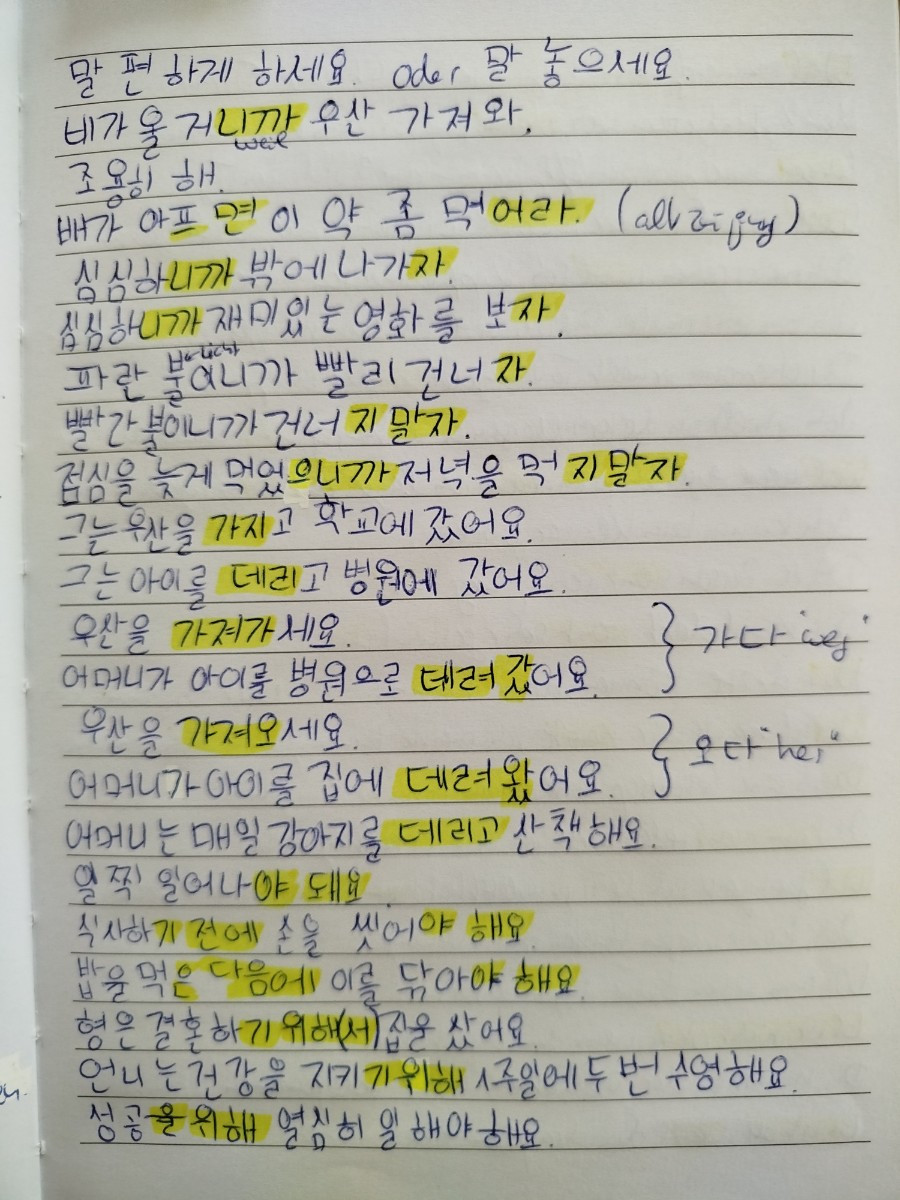 말 편하게 하세요. oder 말 놓으세요.
비가 올 거니까 우산 가져와.
weil
조용히 해.
배가 아프면 이 약 좀 먹어라. (allzeijung)
심심하니까 밖에 나가자.
심심하니까 재미있는 영화를 보자.
파란 불이니까 빨리 건너자.
빨간불이니까 건너지 말자.
점심을 늦게 먹었으니까 저녁을 먹지 말자.
그는 우산을 가지고 학교에 갔어요.
그는 아이를 데리고 병원에 갔어요.
우산을 가져가세요.
어머니가 아이를 병원으로 데려갔어요.
} 가다 "weg"
우산을 가져오세요.
어머니가 아이를 집에 데려왔어요.
} 오다 "her"
어머니는 매일 강아지를 데리고 산책해요.
일찍 일어나야 돼요
식사하기 전에 손을 씻어야 해요
밥을 먹은 다음에 이를 닦아야 해요
형은 결혼하기 위해(서) 집을 샀어요
언니는 건강을 지키기 위해 1주일에 두 번 수영해요.
성공을 위해 열심히 일해야 해요.